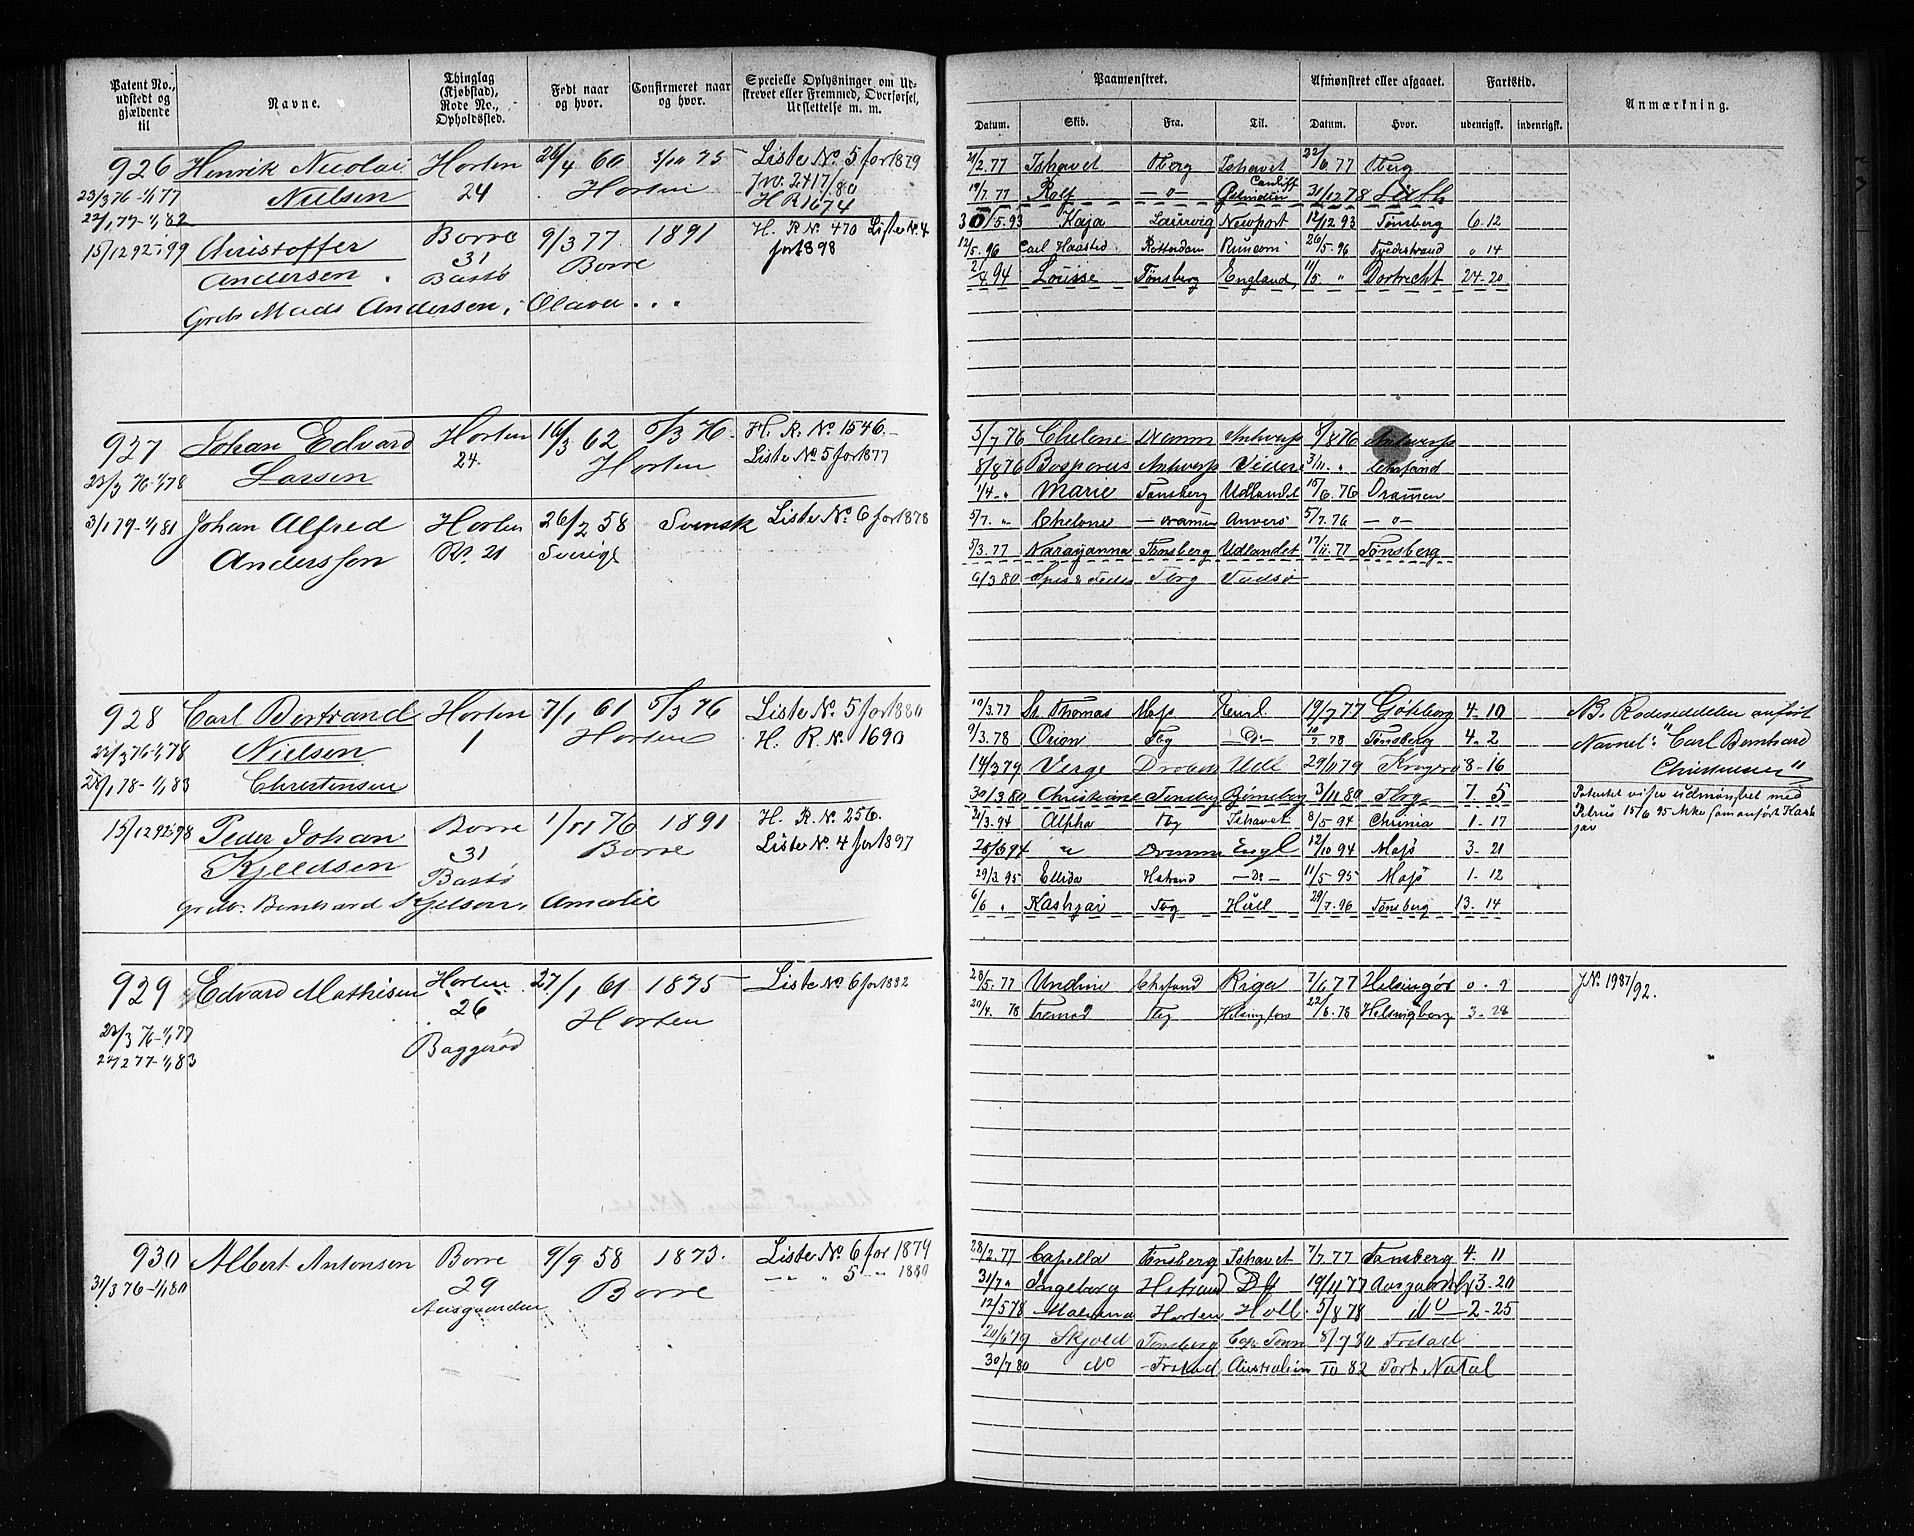 Patent No., udstedt og gjældende til
Navne.
Thinglag (Kjøbstad), Rode No., Opholdssted.
Født naar og hvor.
Confirmeret naar og hvor.
Specielle Oplysninger om Udskrevet eller Fremmed, Overførsel, Udslettelse m. m.
Paamønstret.
Afmønstret eller afgaaet.
Fartstid.
Anmærkning.
Datum. Skib. Fra. Til. Datum. Hvor. udenrigsk. indenrigsk.
926 Henrik Nicolai Horten 26/4 60 5/10 75 Liste No 5 for 1879
23/3 76-1/1 77 Nielsen 24 Horten J No. 2417/80
22/1 77-1/1 82 H R 1674
21/2.77 Ishavet Tberg Ishavet 22/6.77 Tberg
19/7.77 Rolf -"- Cardiff 31/12 78
15/12 92-1/1 99 Christoffer Borre 9/3 77 1891 H. R. No. 470 Liste No. 4
Andersen 31 Borre for 1898
Bastö
Grdb. Mads Andersen, Olava . . .
30/5.93 Kaja Laurvig Newport 12/12 93 Tønsberg 6.12
12/5.96 Carl Haasted Rotterdam Runcorn 26/5.96 Tvedestrand " 14
94 Louise Tønsberg England, 11/5 " Dortrecht 24-20
927 Johan Edvard Horten 16/3 62 5/3 76. H. R. No 1546.
23/3 76-1/1 78 Larsen 24 Horten Liste No 5 for 1877
3/7 76 Chelone Dramm Antwerp 8/8 76 Antwerp
8/8 76 Bosporus Antwerp 3/11. "
1/4 " Marie Tønsberg Udlandet 15/6.76 Dramen
3/1 79-1/1 81 Johan Alfred Horten 26/2 58 Svensk Liste No. 6 for 1878
Andersson No. 21 Sverige
5/7. " Chelone Dramen Anvers 5/7.76 -"-
5/3.77 Narayanna Tønsberg Udlandet 17/11.77 Tønsberg
6/3 80 Tbrg Vadsø
928 Carl Bertrand Horten 7/1 61 5/3 76 Liste No. 5 for 1880
23/3 76-1/1 78 Nielsen 1 Horten H. R. No. 1690
28/1 78-1/1 83 Christensen
19/3.77 St Thomas Moss 19/7 77 Gökborg 4-10
9/3.78 Orion Tbg -Do- 10/7.78 Tønsberg 4. 2
14/3 79 Verge Drobak Udl 29/11 79 Kragerø 8-16
30/3 80 Christiane Tønsberg Björneborg 3/11 80 Tbrg 7. 5
NB. Rodeseddelen anført
Navnet: "Carl Bernhard
Christensen"
15/12 92-98 Peder Johan Borre 1/11 76 1891 H. R. No. 256.
Kjeldsen 31 Borre Liste No. 4 for 1897
Bastö
grdbr. Bernhard Kjelsen, Amalie
21/3.94 Alpha Tbg Ishavet 8/5.94 Chrinia 1-17
28/6 94 " Dramm Engl 12/10 94 Moss 3-21
29/3.95 Ellida Hstrand -Do- 11/5-95 Moss 1-12
6/6 " Kashgar Tbg Hull 29/7.96 Tønsberg 13-14
Patentet viser udmønstret med
Petrus 15/6 95 ikke som anført Kash
gar
929 Edvard Mathisen Horten 27/1 61 1875 Liste No 6 for 1882
23/3 76-1/1 77 26 Horten
24/2 77-1/1 83 Baggerød
28/5.77 Undine Riga 7/6 77 Helsingör
20/4. 78 Fremad Tbg Helsingfors 22/8.78 Helsingborg 3-28
J No 1987/92.
930 Albert Antonsen Borre 9/9 58 1873. Liste No. 6 for 1879
31/3 76-1/1 80 29 Borre -"- " 5 -"- 1880
Aasgaarden
28/2.77 Capella Tønsberg Ishavet 7/7.77 Tønsberg 4. 11
31/7 " Ingeborg Hstrand 19/11 77 Aasgaard 3-20
12/5 78 Malvina Horten Holl. 5/8 78 Do 2-25
20/6 79 Skjold Tønsberg Cap Town 8/7 80 Frstad
30/7.80 Do Frstad Australien 10 82 Port Natal